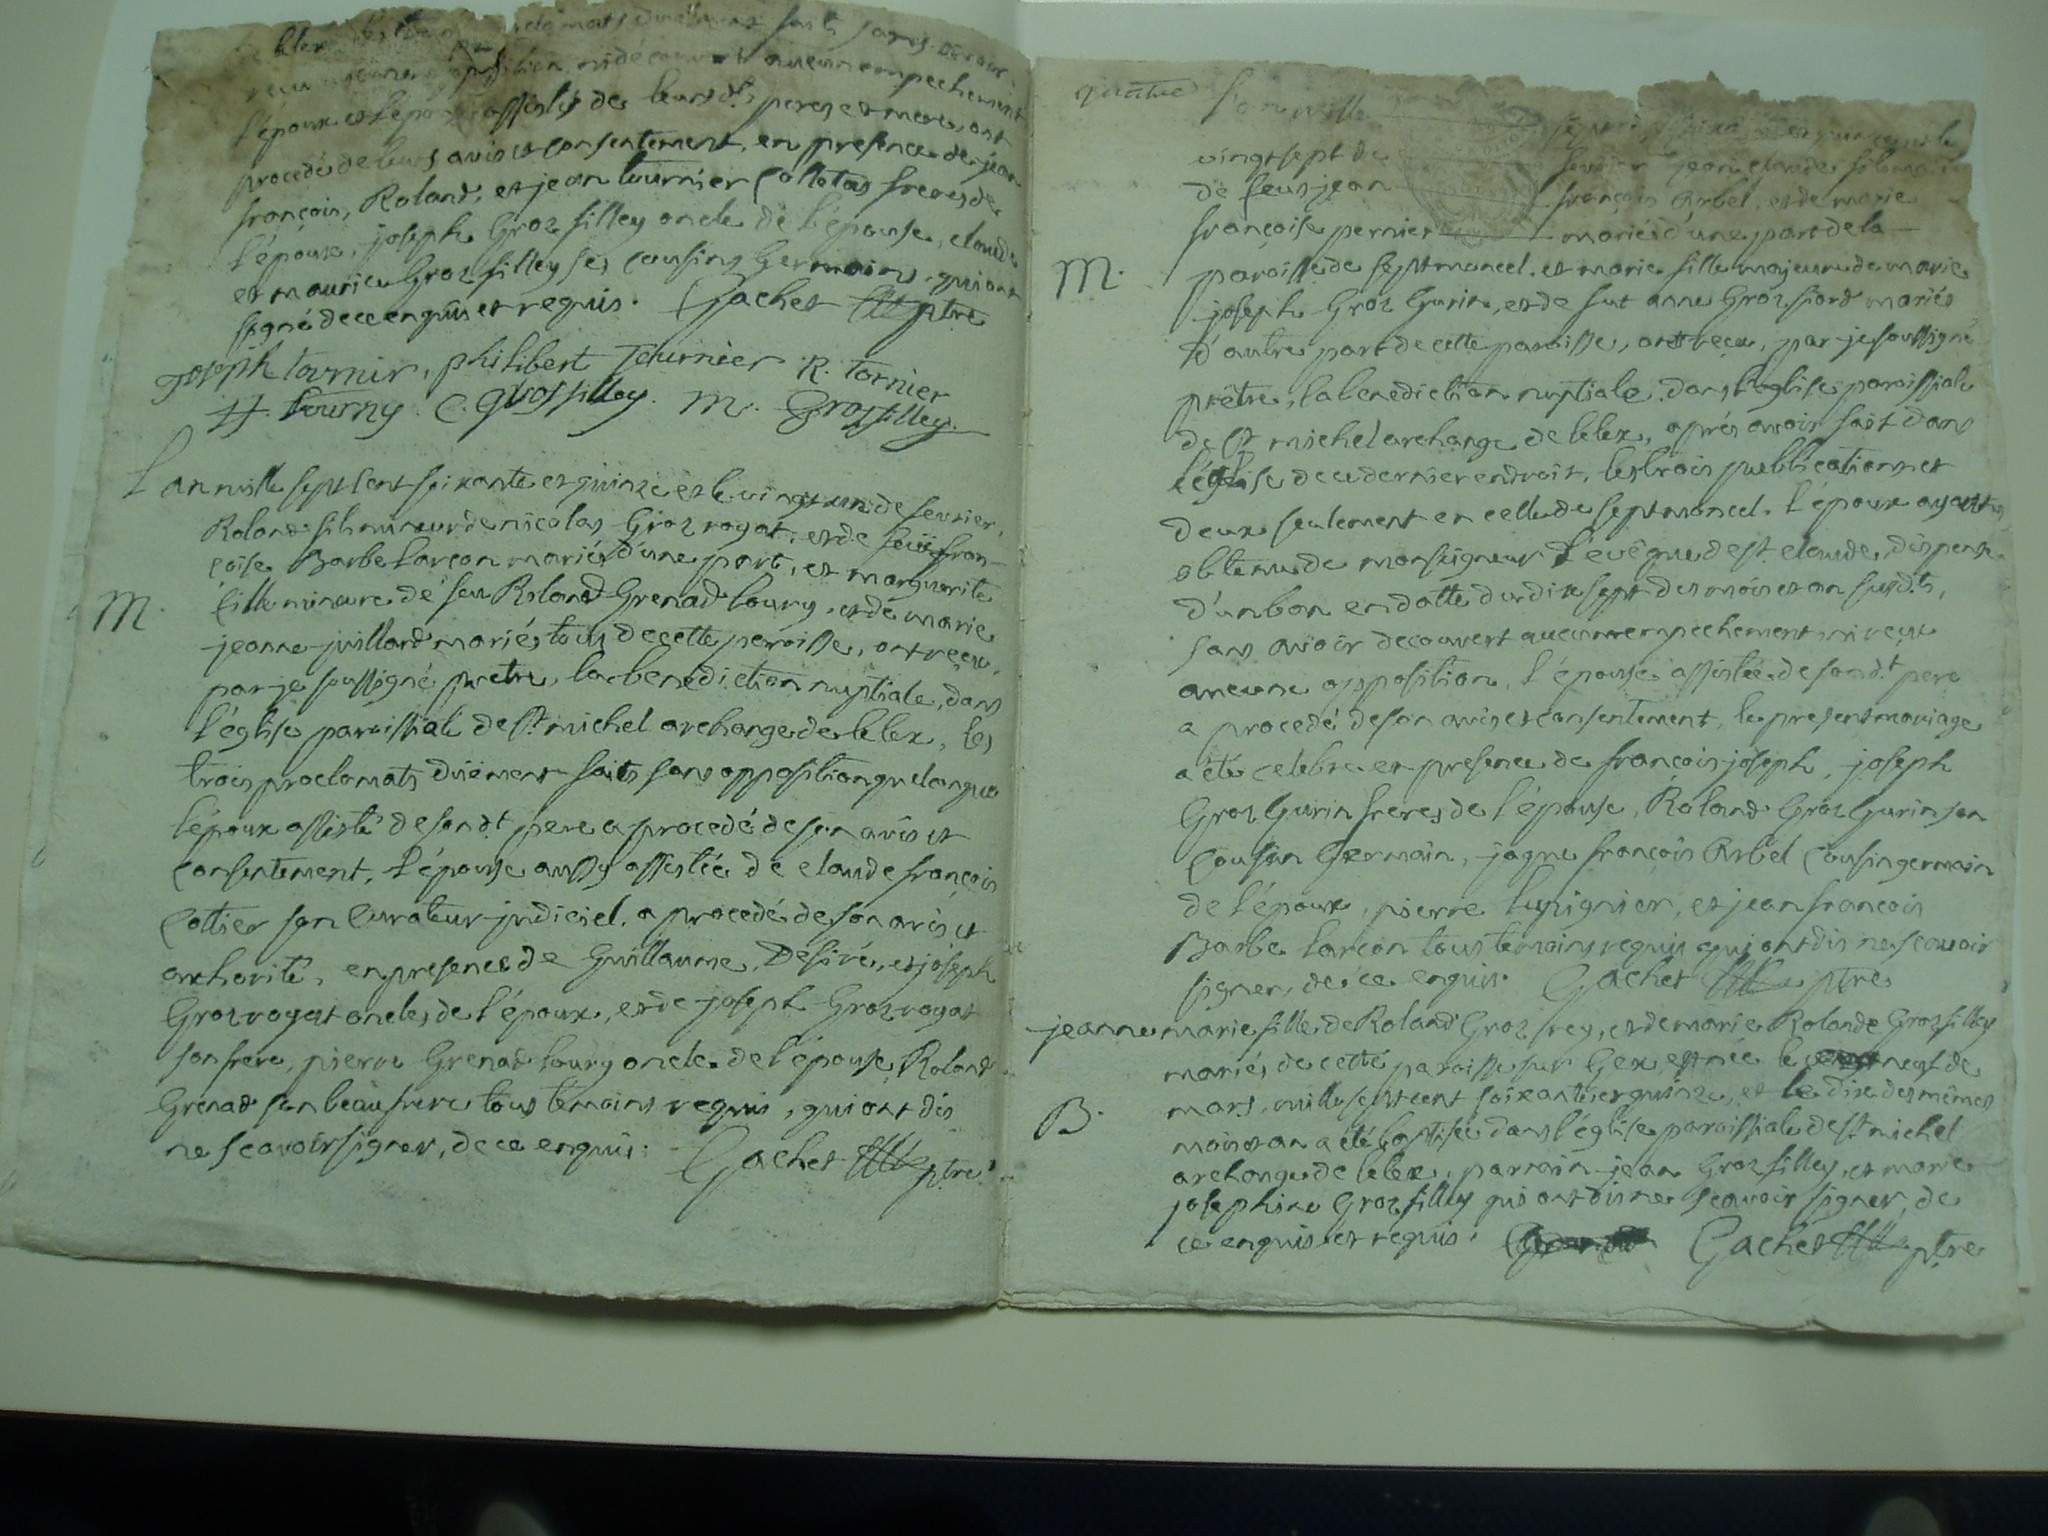 de lelex proclamats duëment faits sans avoir
reçu aucune opposition, ni découvert aucun empechement
l'époux et l'épouse assistés de leursdts peres et meres, ont
procedé de leurs avis et consentement, en presence de jean
françois, Roland, et jean tournier Collotas freres de
l'époux, joseph Groz filley oncle de l'épouse, claude
et maurice Groz filley ses Cousins Germains, qui ont
signé de ce enquis et requis. Gachet ptre
joseph tournir, philibert Tournier R. tornier
C. grosfilley. M. Grosfilley.
L'an mille sept Cent soixante et quinze et le vingt un de fevrier,
Roland fils mineur de nicolas Groz royat, et de feüe fran-
çoise Barbe larçon mariés d'une part, et marguerite
M. fille mineure de feu Roland Grenad loury, et de marie
jeanne juillard mariés tous de cette paroisse, ont reçeu,
par je soussigné prêtre, la benediction nuptiale, dans
l'église paroissiale de St michel archange de lelex, les
trois proclamats duëment faits sans opposition quelanque
l'époux assisté de sondt pere a procedé de son avis et
consentement, l'épouse aussy assistée de claude françois
Cottier son Curateur judiciel, a procedé de son avis et
authorité, en presence de Guillaume, Desiré, et joseph
Groz royat oncles de l'époux, et de joseph Groz royat
son frere, pierre Grenad loury oncle de l'épouse, Roland
Grenad son beau frere tous temoins requis, qui ont dis
ne scavoir signer, de ce enquis. Gachet ptre
quatre
L'an mille sept cent soixante et quinze et le
vingt sept de fevrier jean claude fils
de feus jean françois Arbel, et de marie
françoise pernier mariés d'une part de la
M. paroisse de septmoncel, et marie fille majeure de marie
joseph Groz Gurin, et de fut anne Groz fiord mariés
d'autre part de cette paroisse, ont reçeu, par je soussigné
prêtre, la benediction nuptiale, dans l'église paroissiale
de St michel archange de lelex, aprés avoir fait dans
l'église de ce dernier endroit, les trois publications et
deux seulement en celle de septmoncel. l'époux ayant
obtenu de monseigneur l'évêque de st. claude, dispense
d'un ban en datte du dix sept des mois et an susdts,
sans avoir decouvert aucun empechement ni reçu
aucune opposition, l'épouse assistée de sondt pere
a procedé de son avis et consentement, le present mariage
a été celebré en presence de françois joseph, joseph
Groz Gurin freres de l'épouse, Roland Groz Gurin son
Cousin Germain, jaque françois Arbel Cousin germain
de l'époux, pierre et jean françois
Barbe larçon tous temoins requis qui ont dis ne scavoir
signer, de ce enquis. Gachet ptre
jeanne marie fille de Roland Groz frey, et de marie Rolande Groz filley
mariés de cette paroisse sur Gex, est née le neuf de
B. mars, mille sept cent soixante et quinze, et le dix des mêmes
mois et an a été baptisée dans l'église paroissiale de St michel
archange de lelex, parrain jean Groz filley, et marie
josephine Groz filley qui ont dis ne scavoir signer, de
ce enquis et requis. Gachet ptre